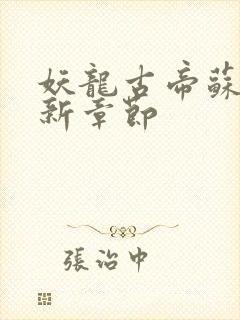 妖龍古帝蘇
新章節
張治中